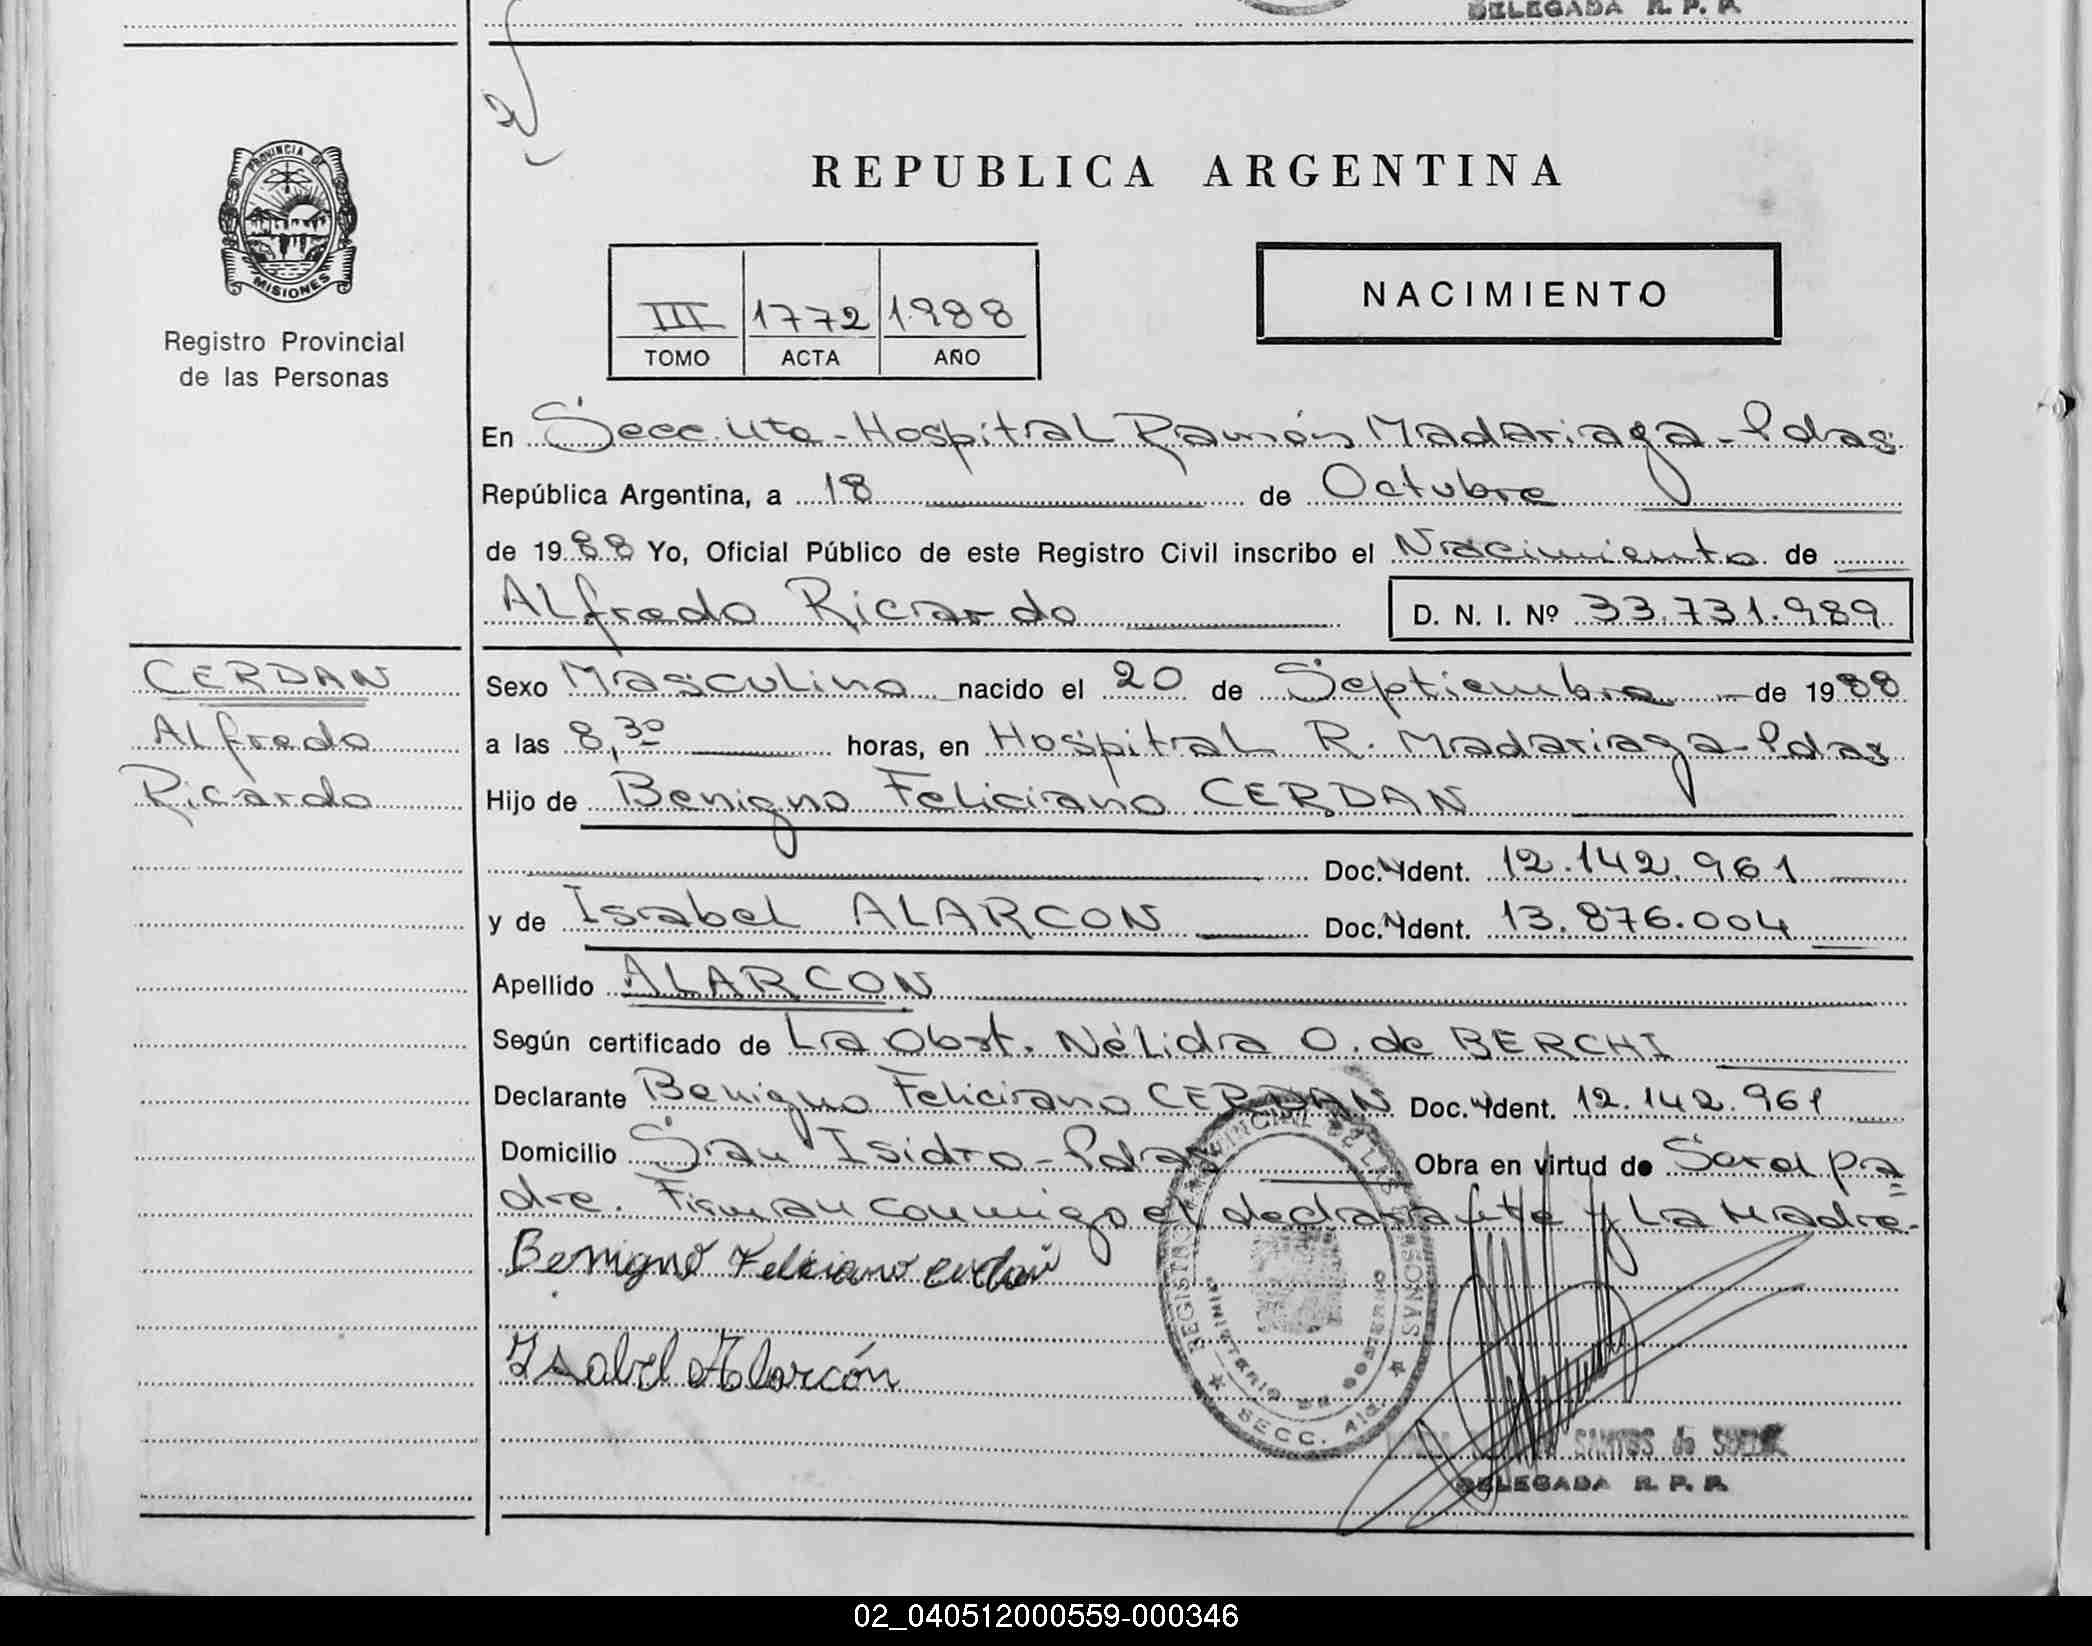 DELEGADA R. P. P.
PROVINCIA DE
MISIONES
Registro Provincial
de las Personas
REPUBLICA ARGENTINA
III 1772 1988
TOMO ACTA AÑO
NACIMIENTO
En Secc. Hospital Ramón Madariaga - Pdas
República Argentina, a 18 de Octubre
de 1988 Yo, Oficial Público de este Registro Civil inscribo el Nacimiento de
Alfredo Ricardo D. N. I. Nº 33.731.989
CERDAN
Alfredo
Ricardo
Sexo Masculino nacido el 20 de Septiembre de 1988
a las 8,30 horas, en Hospital R. Madariaga - Pdas
Hijo de Benigno Feliciano CERDAN
Doc. Ident. 12.142.961
y de Isabel ALARCON Doc. Ident. 13.876.004
Apellido ALARCON
Según certificado de La Obst. Nélida O. de BERCHI
Declarante Benigno Feliciano CERDAN Doc. Ident. 12.142.961
Domicilio San Isidro - Pdas Obra en virtud de Ser el pa
dre. Firman conmigo el declarante y La Madre.
Benigno Feliciano Cerdan
Isabel Alarcón
REGISTRO PROVINCIAL DE LAS PERSONAS
MINISTERIO DE GOBIERNO
SECC. 4ta.
SANTOS de
DELEGADA R. P. P.
02_040512000559-000346